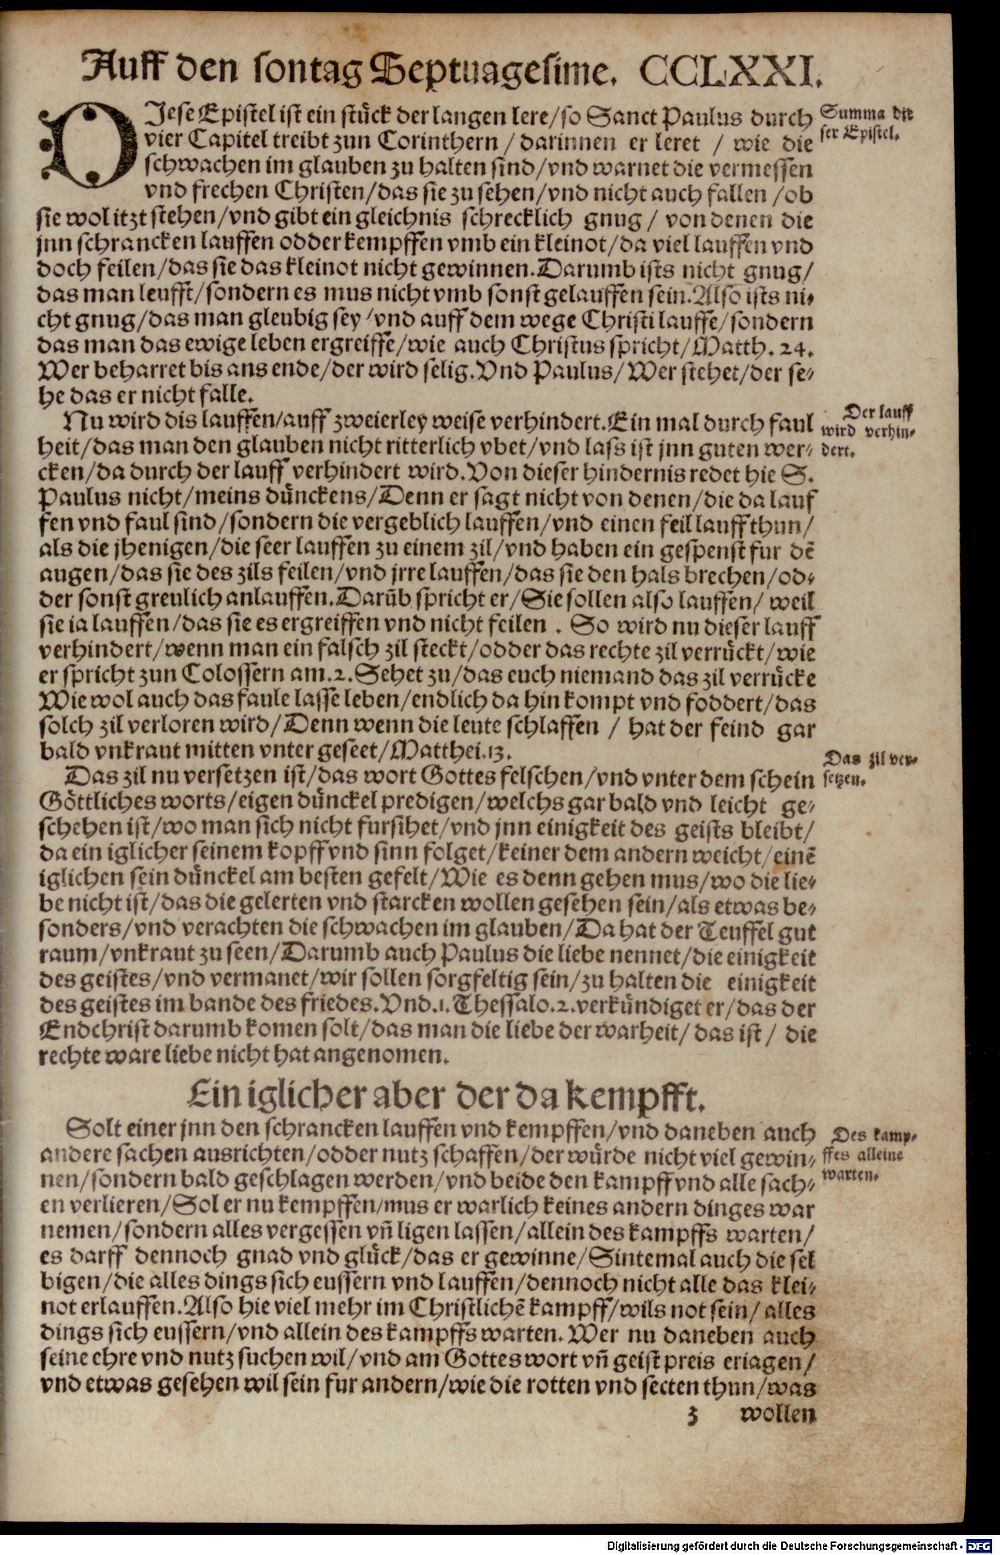 Auff den sontag Septuagesime. CCLXXI.
DIese Epistel ist ein stück der langen lere/so Sanct Paulus durch
vier Capitel treibt zun Corinthern / darinnen er leret / wie die
schwachen im glauben zu halten sind/vnd warnet die vermessen
vnd frechen Christen/das sie zu sehen/vnd nicht auch fallen /ob
sie wol itzt stehen/vnd gibt ein gleichnis schrecklich gnug / von denen die
jnn schrancken lauffen odder kempffen vmb ein kleinot/da viel lauffen vnd
doch feilen/das sie das kleinot nicht gewinnen.Darumb ists nicht gnug/
das man leufft/sondern es mus nicht vmb sonst gelauffen sein.Also ists ni-
cht gnug/das man gleubig sey /vnd auff dem wege Christi lauffe/sondern
das man das ewige leben ergreiffe/wie auch Christus spricht/Matth. 24.
Wer beharret bis ans ende/der wird selig.Vnd Paulus/Wer stehet/der se-
he das er nicht falle.
Summa die
ser Epistel.
Nu wird dis lauffen/auff zweierley weise verhindert.Ein mal durch faul
heit/das man den glauben nicht ritterlich vbet/vnd lass ist jnn guten wer-
cken/da durch der lauff verhindert wird.Von dieser hindernis redet hie S.
Paulus nicht/meins dünckens/Denn er sagt nicht von denen/die da lauf
fen vnd faul sind/sondern die vergeblich lauffen/vnd einen feil lauff thun/
als die jhenigen/die seer lauffen zu einem zil/vnd haben ein gespenst fur dē
augen/das sie des zils feilen/vnd jrre lauffen/das sie den hals brechen/od-
der sonst greulich anlauffen.Darūb spricht er/Sie sollen also lauffen/ weil
sie ia lauffen/das sie es ergreiffen vnd nicht feilen . So wird nu dieser lauff
verhindert/wenn man ein falsch zil steckt/odder das rechte zil verrückt/wie
er spricht zun Colossern am.2.Sehet zu/das euch niemand das zil verrücke
Wie wol auch das faule lasse leben/endlich da hin kompt vnd foddert/das
solch zil verloren wird/Denn wenn die leute schlaffen / hat der feind gar
bald vnkraut mitten vnter geseet/Matthei.13.
Der lauff
wird verhin-
dert.
Das zil nu versetzen ist/das wort Gottes felschen/vnd vnter dem schein
Göttliches worts/eigen dünckel predigen/welchs gar bald vnd leicht ge-
schehen ist/wo man sich nicht fursihet/vnd jnn einigkeit des geists bleibt/
da ein iglicher seinem kopff vnd sinn folget/keiner dem andern weicht/einē
iglichen sein dünckel am besten gefelt/Wie es denn gehen mus/wo die lie-
be nicht ist/das die gelerten vnd starcken wollen gesehen sein/als etwas be-
sonders/vnd verachten die schwachen im glauben/Da hat der Teuffel gut
raum/vnkraut zu seen/Darumb auch Paulus die liebe nennet/die einigkeit
des geistes/vnd vermanet/wir sollen sorgfeltig sein/zu halten die einigkeit
des geistes im bande des friedes.Vnd.1.Thessalo.2.verkündiget er/das der
Endchrist darumb komen solt/das man die liebe der warheit/das ist/ die
rechte ware liebe nicht hat angenomen.
Das zil ver-
setzen.
Ein iglicher aber der da kempfft.
Solt einer jnn den schrancken lauffen vnd kempffen/vnd daneben auch
andere sachen ausrichten/odder nutz schaffen/der würde nicht viel gewin-
nen/sondern bald geschlagen werden/vnd beide den kampff vnd alle sach-
en verlieren/Sol er nu kempffen/mus er warlich keines andern dinges war
nemen/sondern alles vergessen vn̄ ligen lassen/allein des kampffs warten/
es darff dennoch gnad vnd glück/das er gewinne/Sintemal auch die sel
bigen/die alles dings sich eussern vnd lauffen/dennoch nicht alle das klei-
not erlauffen.Also hie viel mehr im Christlichē kampff/wils not sein/alles
dings sich eussern/vnd allein des kampffs warten.Wer nu daneben auch
seine ehre vnd nutz suchen wil/vnd am Gottes wort vn̄ geist preis eriagen/
vnd etwas gesehen wil sein fur andern/wie die rotten vnd secten thun/was
Des kamp-
ffes alleine
warten.
z wollen
Digitalisierung gefördert durch die Deutsche Forschungsgemeinschaft - DFG